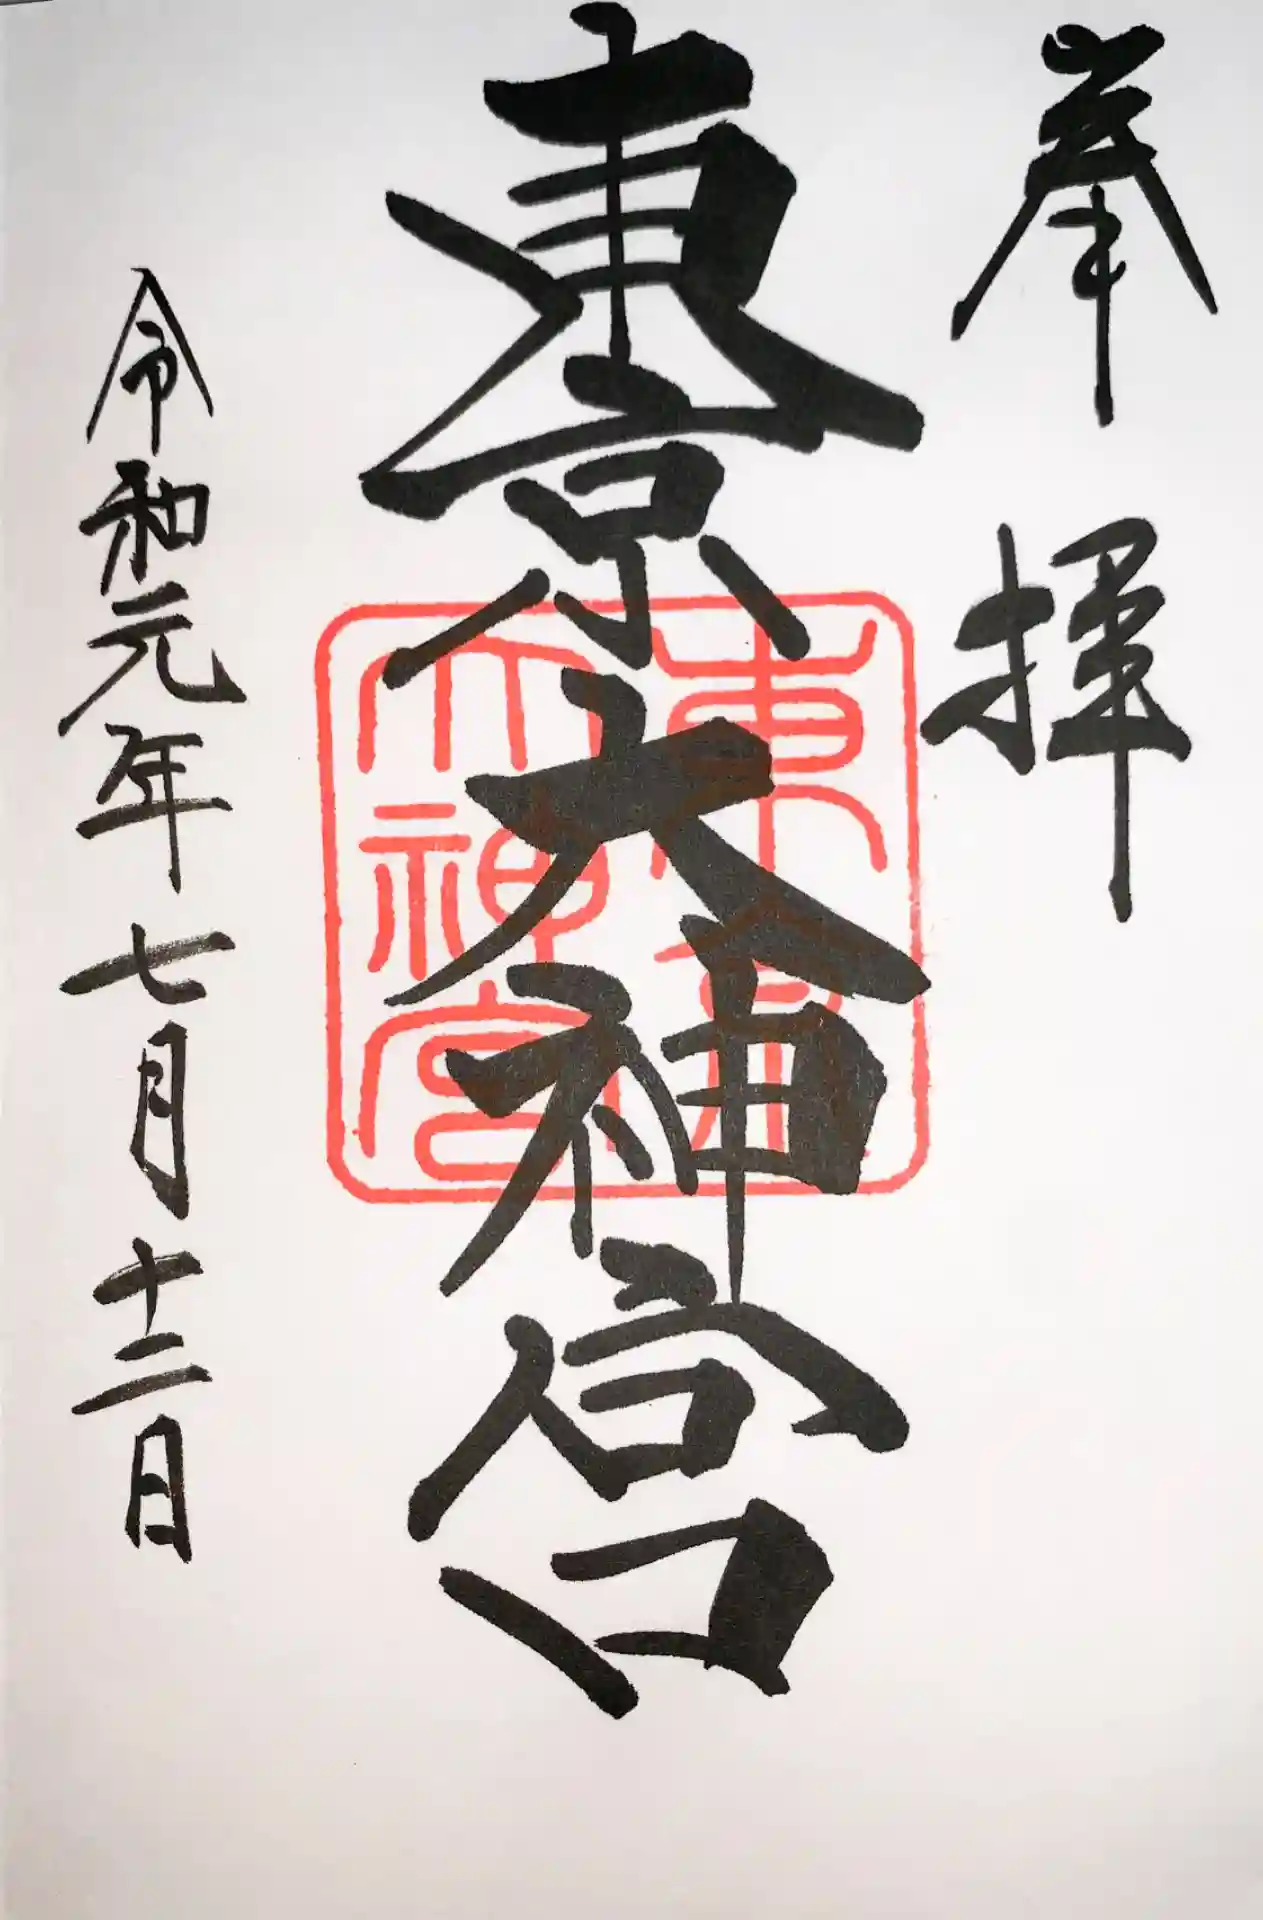 奉拝
東京大神宮
東京
大神宮
令和元年七月十二日